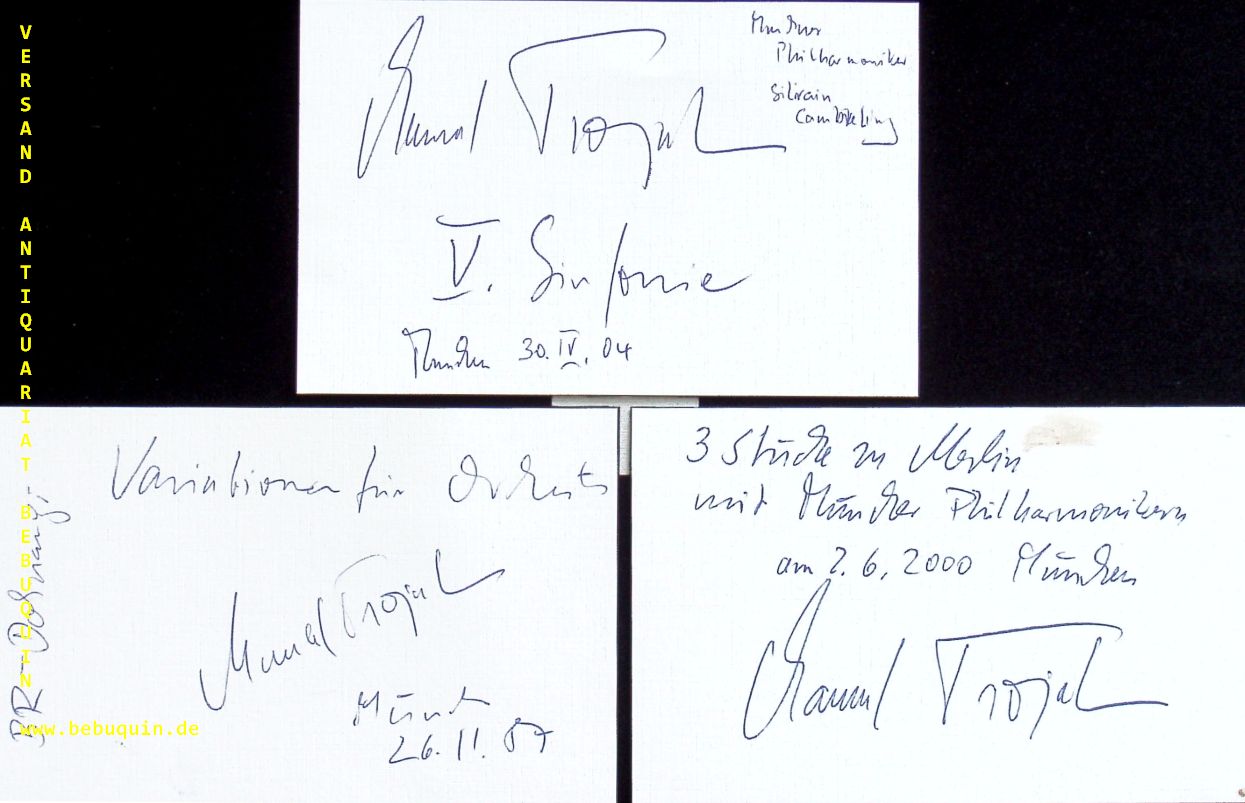 VERSAND ANTIQUARIAT BEBUQUIN
Münchner
Philharmoniker
Silvain
Cambreling
Manfred Trojahn
V. Sinfonie
München 30. IV. 04
Variationen für Orchester
Manfred Trojahn
München
26. 11. 87
BR-Dohnanyi
www.bebuquin.de
3 Stücke zu Merlin
mit Münchner Philharmonikern
am 2. 6. 2000 München
Manfred Trojahn